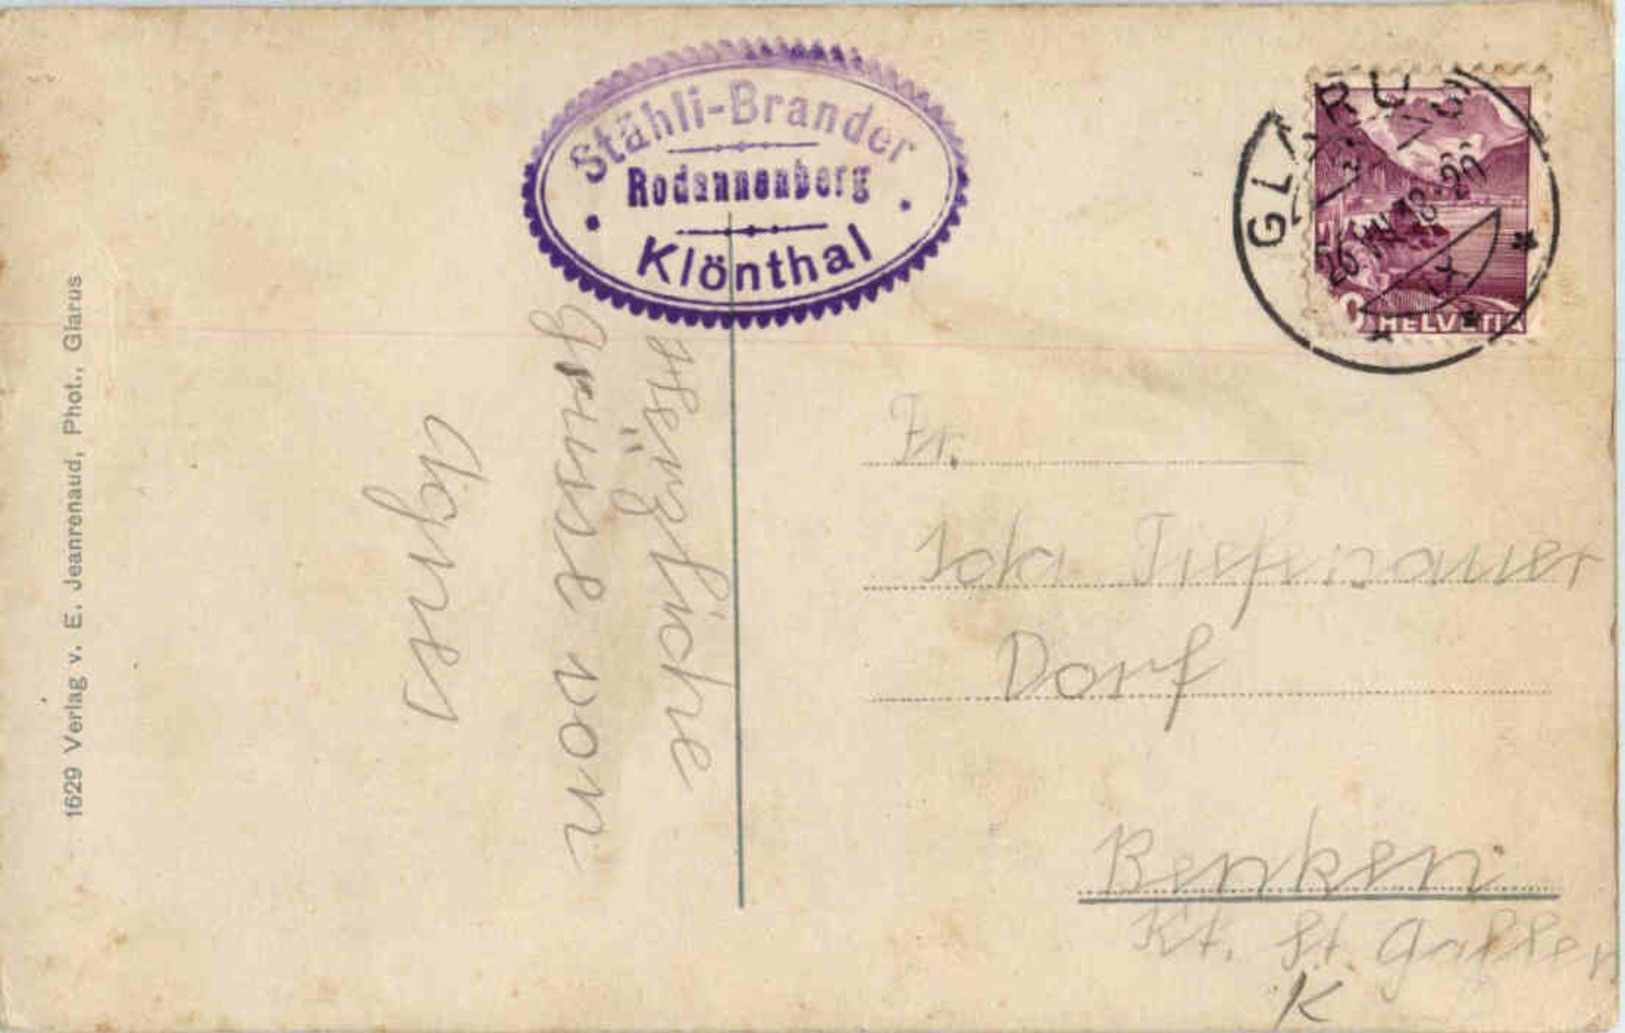 Stähli-Brander
Rodannenberg
Klönthal
GLARUS
HELVETIA
1629 Verlag v. E. Jeanrenaud, Phot., Glarus
Herzliche
Grüsse von
Agnes
Fr.
Ida Tiefenauer
Dorf
Benken
Kt. St. Gallen
K